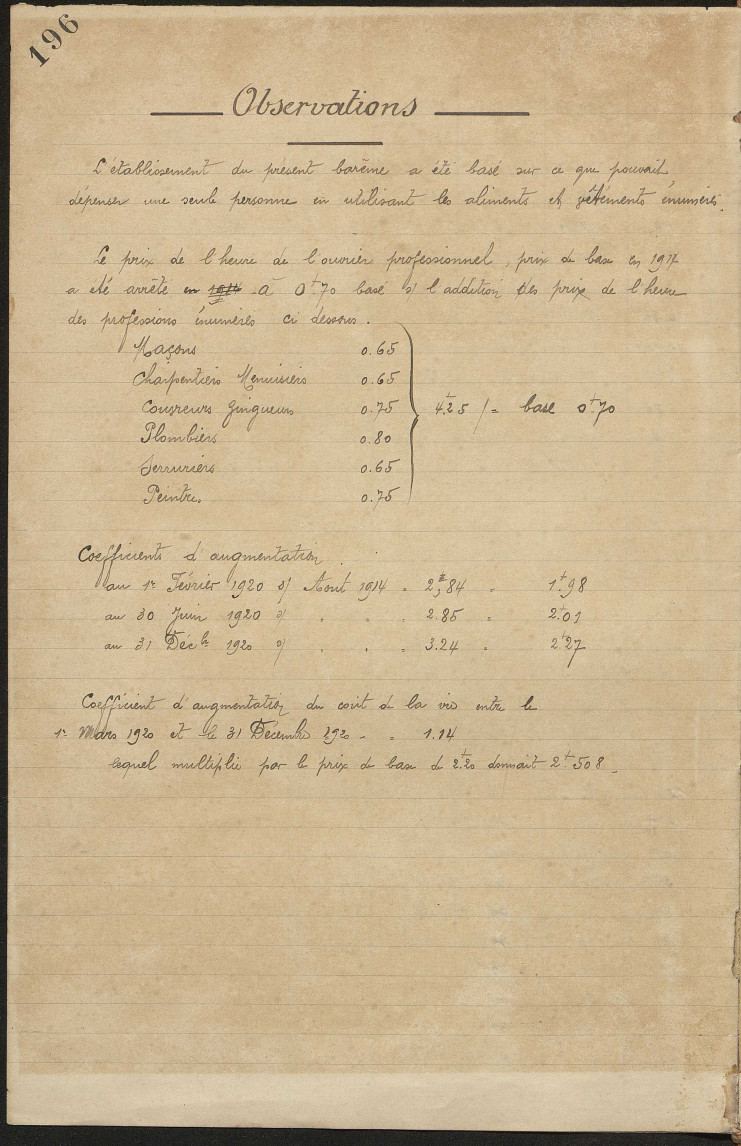 196
Observations
L'établissement du présent barême a été basé sur ce que pouvait
dépenser une seule personne en utilisant les aliments et vêtements énumérés.
Le prix de l'heure de l'ouvrier professionnel, prix de base en 1914
a été arrêté en 1914 à 0f70 basé s/ l'addition des prix de l'heure
des professions énumérés ci dessous.
Maçons 0.65
Charpentiers Menuisiers 0.65
Couvreurs Zingueurs 0.75 4f25 / = base 0f70
Plombiers 0.80
Serruriers 0.65
Peintres 0.75
Coefficients d'augmentation
au 1er Février 1920 s/ Aout 1914 = 2,84 = 1f98
au 30 Juin 1920 s/ . . = 2.85 = 2f01
au 31 Décbre 1920 s/ . . = 3.24 = 2f27
Coefficient d'augmentation du coût de la vie entre le
1er Mars 1920 et le 31 Décembre 1920 - = 1.14
lequel multiplié par le prix de base de 2f20 donnait 2f508